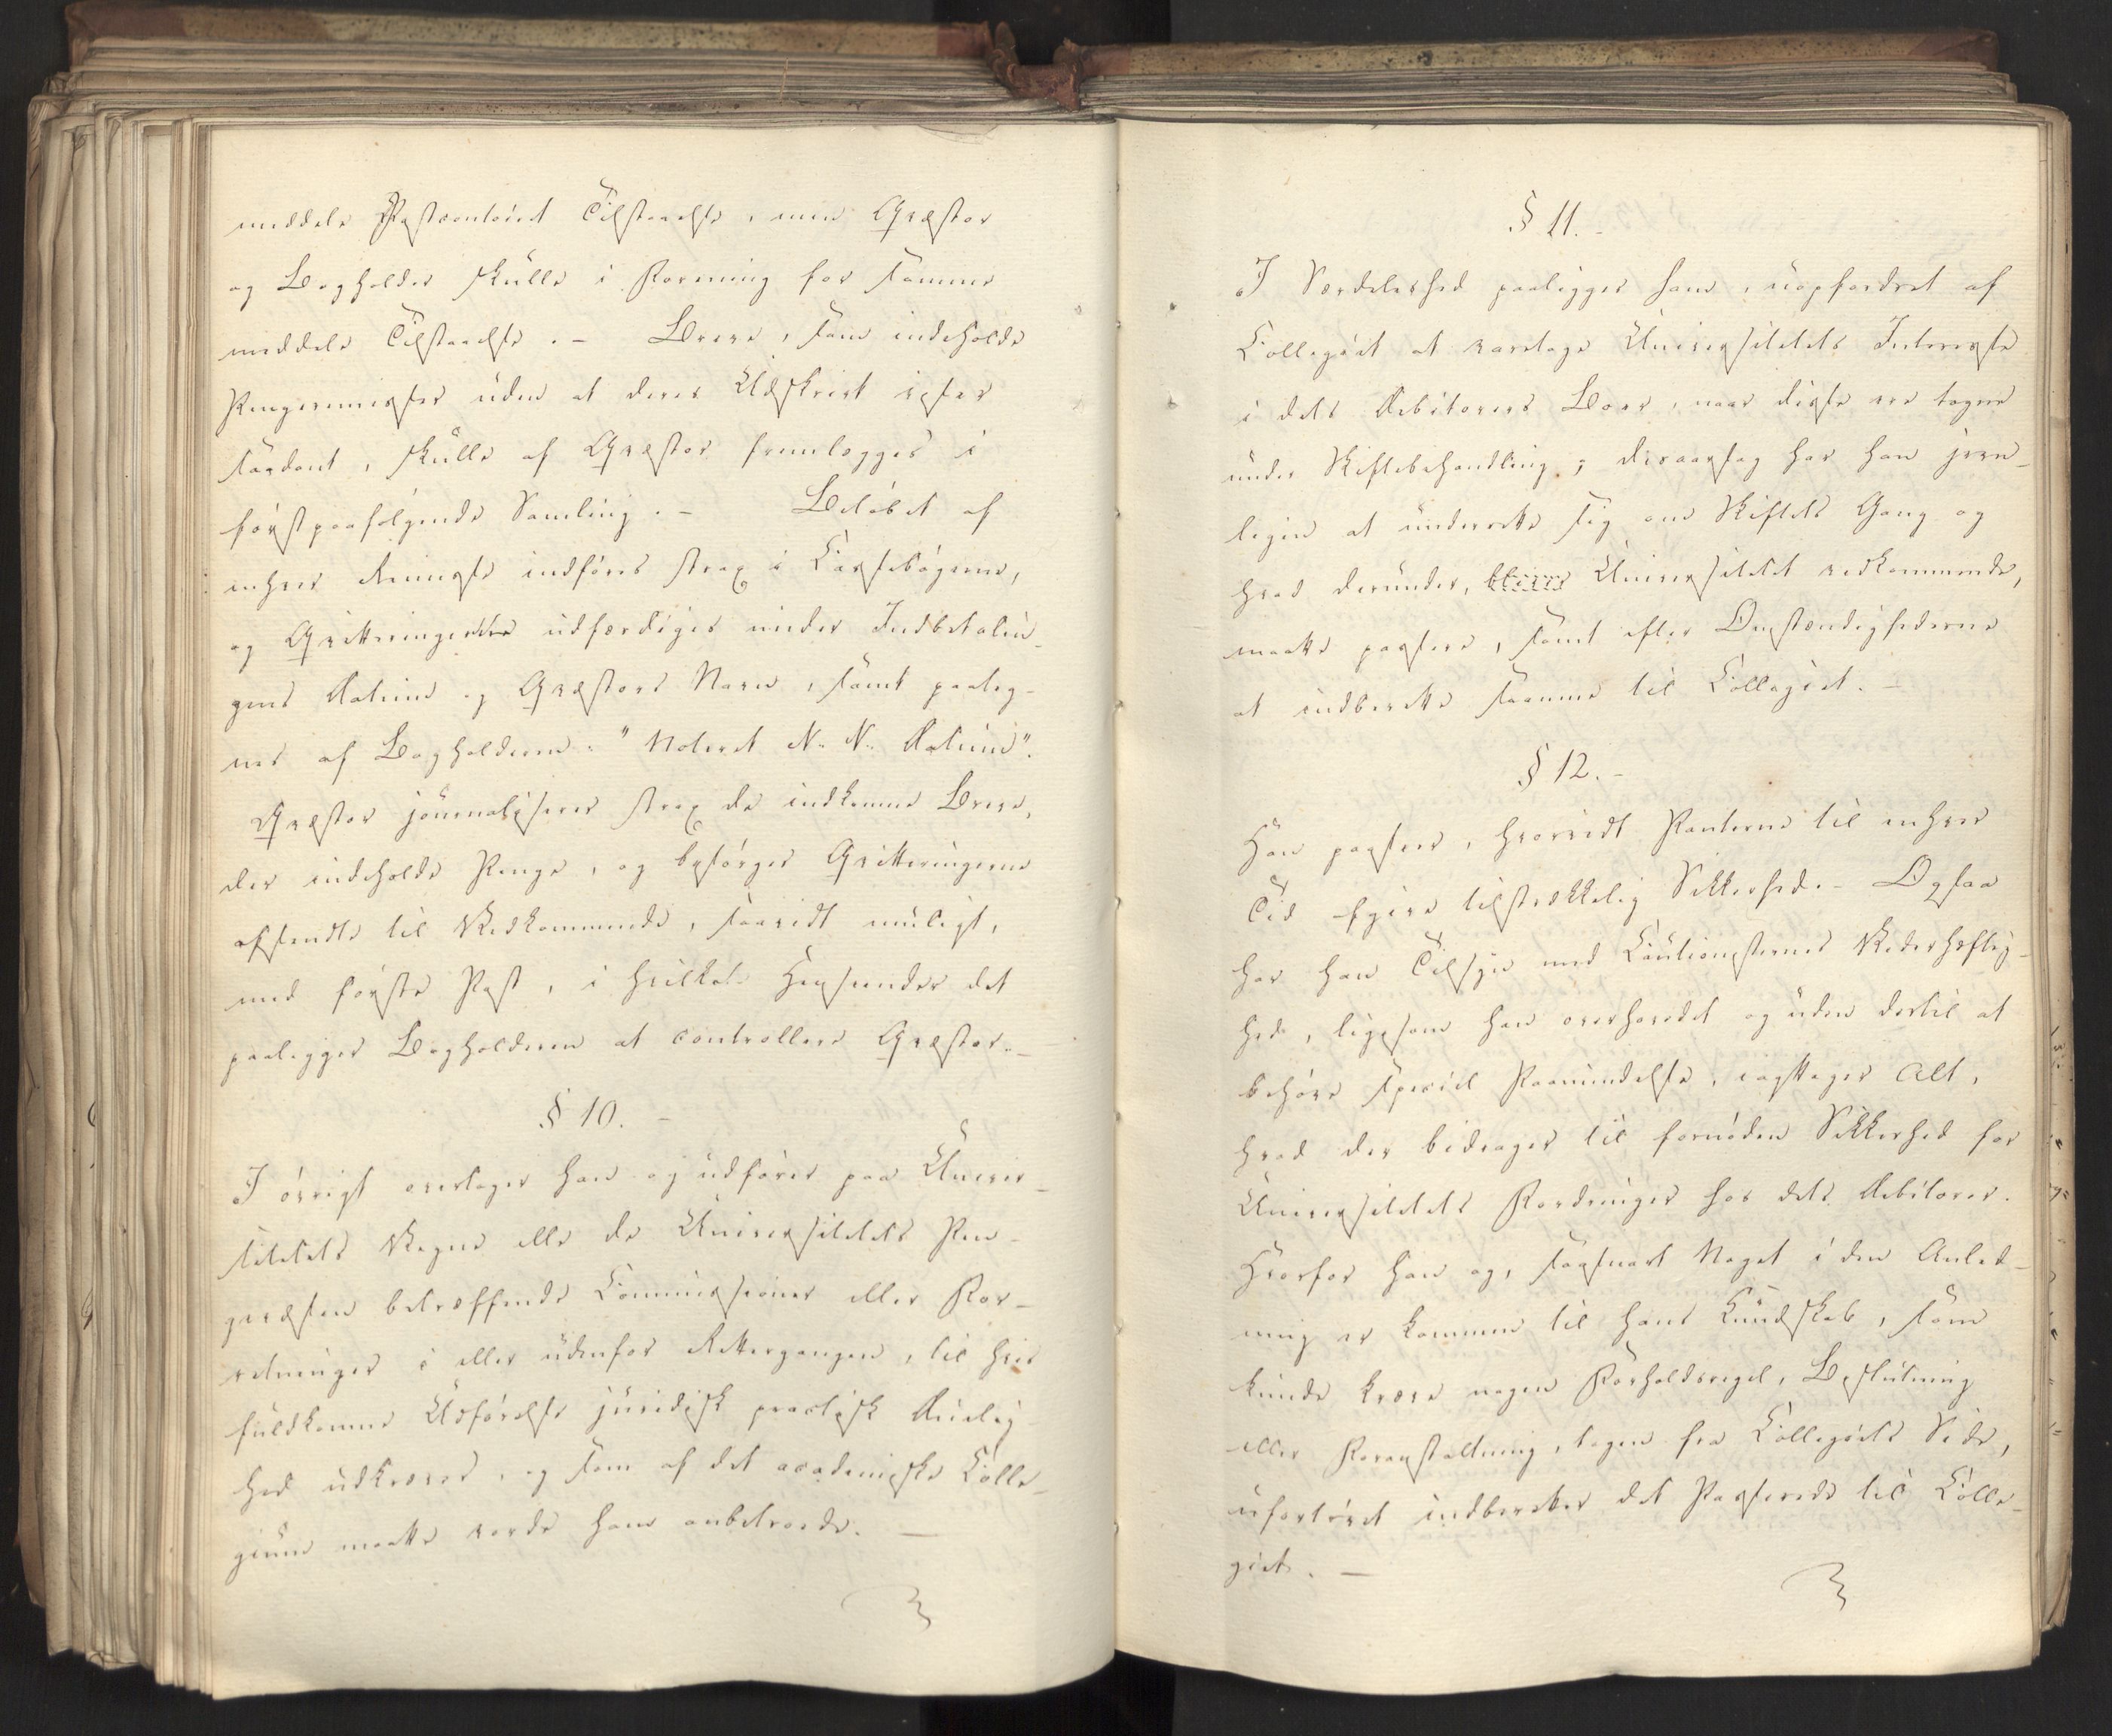 meddele Postcontoiret Tilstaaelse, men Qvæstor
og Bogholder skulle i Forening for samme
meddele Tilstaaelse. – Breve, som indeholde
Pengeremisser uden at deres Udskrivt viser
saadant, skulle af Qvæstor fremlægges i
førstpaafølgende Samling. – Beløbet af
enhver Remisse indføres strax i Cassebøgerne,
og Qvitteringerne udfærdiges under Indbetalin-
gens Datum og Qvæstors Navn, samt paateg-
nes af Bogholderen: "Noteret N. N. Datum".
Qvæstor journaliserer strax de indkomne Breve,
der indeholde Penge, og besørger Qvitteringerne
afsendte til Vedkommende, saavidt muligt,
med første Post, i hvilken Henseender det
paaligger Bogholderen at controllere Qvæstor. –
§ 10. –
I øvrigt overtager han og udfører paa Univer-
sitetets Vegne alle de Universitetets Pen-
gevæsen betræffende Commissioner eller For-
retninger i eller udenfor Rettergangen, til hvis
fuldkomne Udførelse juridisk practisk Duelig-
hed udkræves, og som af det academiske Colle-
gium maatte vorde ham anbetroede. –
§ 11. –
I Særdeleshed paaligger ham, uopfordret af
Collegiet at varetage Universitetets Interesse
i dets Debitorers Boer, naar disse ere tagne
under Skiftebehandling; desaarsag har han jevn-
ligen at underrette sig om Skiftets Gang og
hvad derunder, bliver Universitetet vedkommende,
maatte passere, samt efter Omstændighederne
at indberette samme til Collegiet. –
§ 12. –
Han passer, hvorvidt Panterne til enhver
Tid afgive tilstrækkelig Sikkerhed. – Ogsaa
har han Tilsyn med Cautionisternes Vederhæftig-
hed, ligesom han overhovedet og uden dertil at
behøve speciel Paamindelse, iagttager Alt,
hvad der bidrager til fornøden Sikkerhed for
Universitetets Fordringer hos dets Debitorer.
Hvorfor han og, saasnart Noget i den Anled-
ning er kommen til hans Kundskab, som
kunde kræve nogen Forholdsregel, Beslutning
eller Foranstaltning, tagen fra Collegiets Side,
ufortøvet indberetter det Passerede til Colle-
giet. –